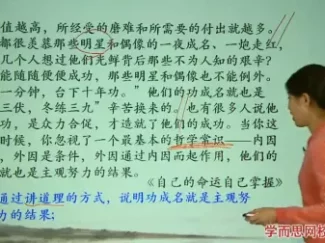 值越高，所经受的磨难和所需要的付出就越多。
都很羡慕那些明星和偶像的一夜成名、一炮走红，
几个人想过他们光鲜背后那些不为人知的艰辛？
能随随便便成功，那些明星和偶像也不能例外。
一分钟，台下十年功。”他们的功成名就也是
三伏，冬练三九”辛苦换来的。也有很多人说他
功，是众力合促，才造就了他们的成功。当你这
时候，你忽视了一个最基本的哲学常识——内因
，外因是条件，外因通过内因而起作用，他们的
也是主观努力的结果。
《自己的命运自己掌握》
通过讲道理的方式，说明功成名就是主观努
力的结果；
学而思网校